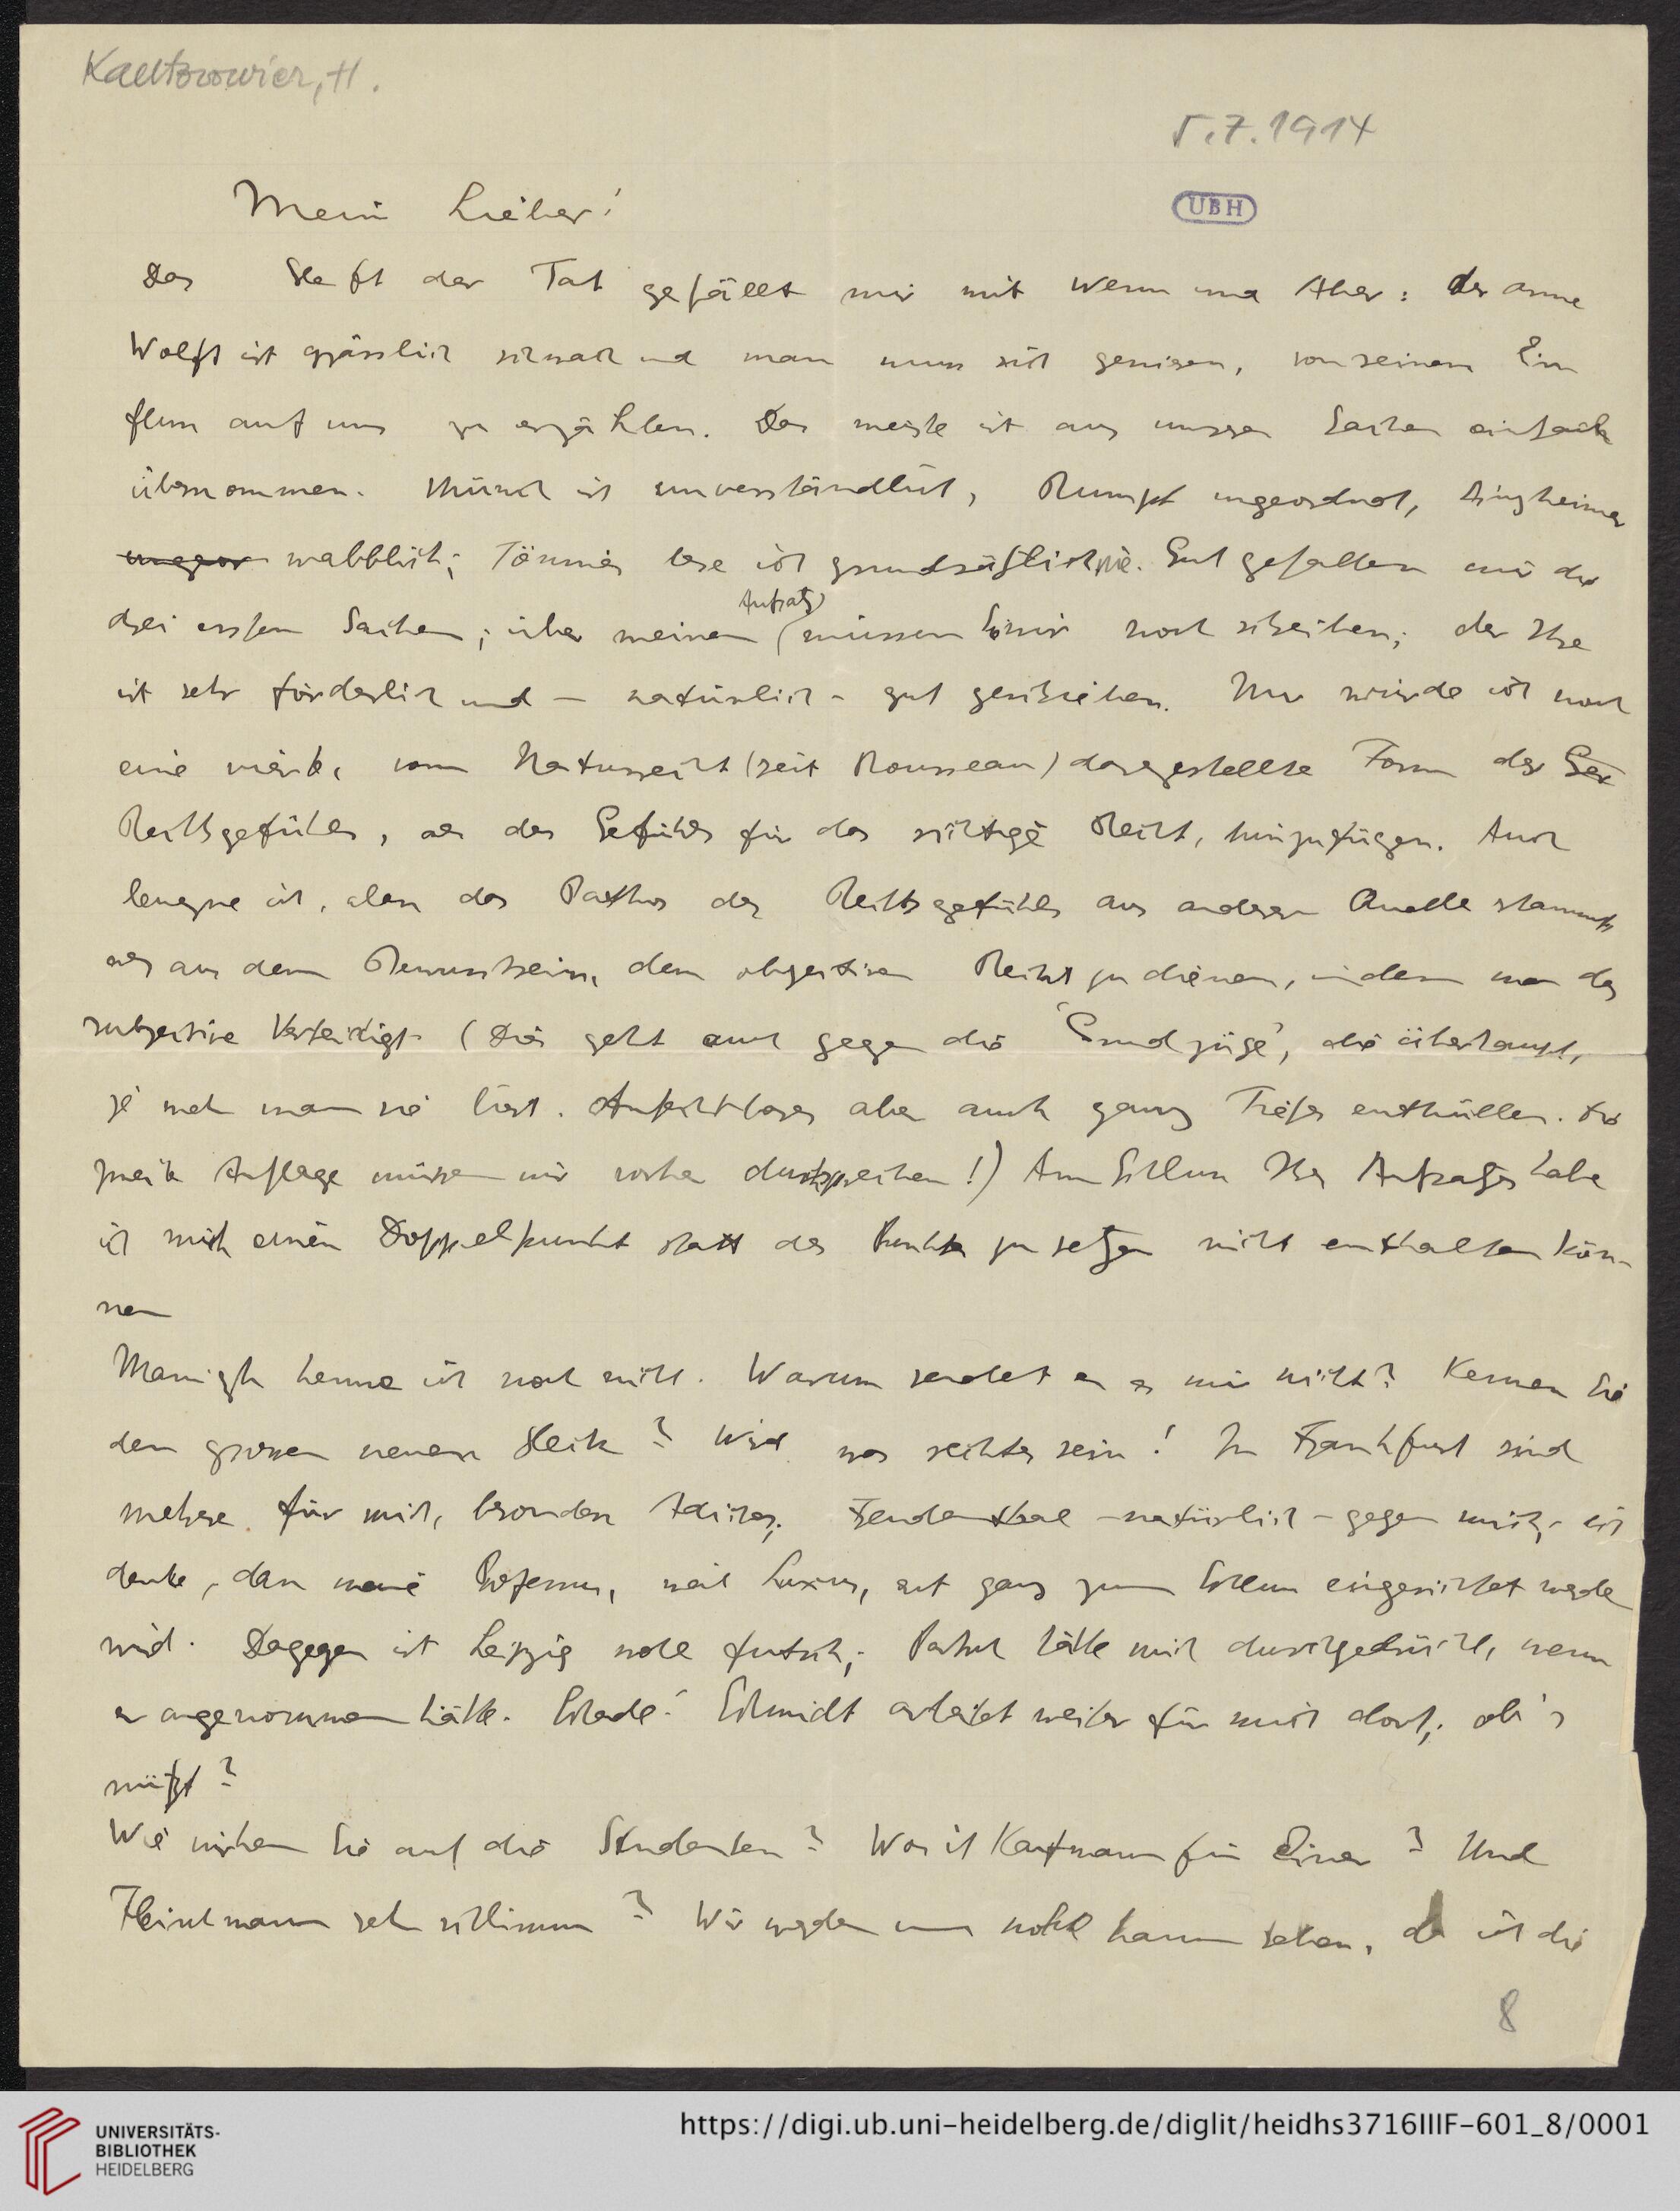 Kantorowicz, H.
5.7.1914
Mein Lieber!
UBH
Das Heft der Tat gefällt mir mit Wenn und Aber: der arme
Wolff ist grässlich schwach und man muss sich genieren, von seinem Ein
fluss auf uns zu erzählen. Das meiste ist aus unseren Sachen einfach
übernommen. Münch ist unverständlich, Rumpf ungeordnet, Sinzheimer
wabblich; Tönnies lese ich grundsätzlich nie. Gut gefallen mir die
drei ersten Sachen; über meinen Aufsatz müssen Sie mir noch schreiben; der Ihre
ist sehr förderlich und – natürlich – gut geschrieben. Nur würde ich noch
eine vierte, vom Naturrecht (seit Rousseau) dargestellte Form des Ger
Rechtsgefühls, als des Gefühls für das richtige Recht, hinzufügen. Auch
leugne ich, dass das Pathos des Rechtsgefühls aus anderer Quelle stammt
als aus dem Bewusstsein, dem objectiven Recht zu dienen, indem man das
subjective verteidigt. (Dies geht auch gegen die "Grundzüge", die überhaupt,
je mehr man sie liest, Anfechtbares aber auch ganz Tiefes enthüllen. Die
zweite Auflage müssen wir vorher durchsprechen!) Am Schluss Ihres Aufsatzes habe
ich mich einen Doppelpunkt statt des Punktes zu setzen nicht enthalten kön-
nen
kenne ich noch nicht. Warum sendet er es mir nicht? Kennen Sie
den grossen neuen Heck? Wird was rechtes sein! In Frankfurt sind
mehrere für mich, besonders Adickes, Freudenthal – natürlich – gegen mich; ich
denke, dass meine Professur, weil Luxus, erst ganz zum Schluss eingerichtet werden
wird. Dagegen ist Leipzig wohl futsch; hätte mich durchgedrückt, wenn
er angenommen hätte. Schade! Schmidt arbeitet weiter für mich dort; ob's
nützt?
Wie wirken Sie auf die Studenten? Was ist Kaufmann für Einer? Und
sehr schlimm? Wir werden uns wohl kaum sehen, da ich die
8
UNIVERSITÄTS-
BIBLIOTHEK
HEIDELBERG
https://digi.ub.uni-heidelberg.de/diglit/heidhs3716IIIF-601_8/0001